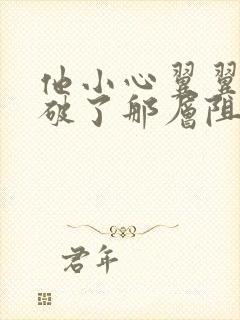 他小心翼翼
破了那层阻
君年